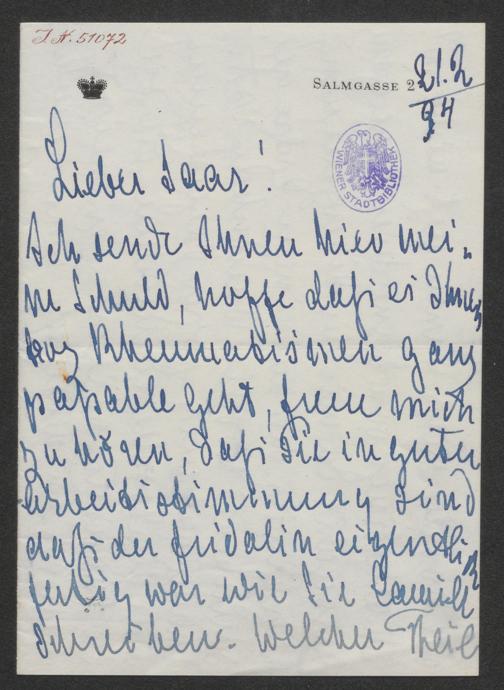 I. N. 51072
SALMGASSE 2
21.2
94
WIENER STADTBIBLIOTHEK
Lieber Saar!
Ich sende Ihnen hier mei-
ne Schuld, hoffe daß es Ihnen
troz Rheumatismen ganz
passable geht, freue mich
zu hören, daß Sie in guter
Arbeitsstimmung sind
daß der Fridolin eigentlich
fertig war wie Sie
schreiben. Welcher Theil